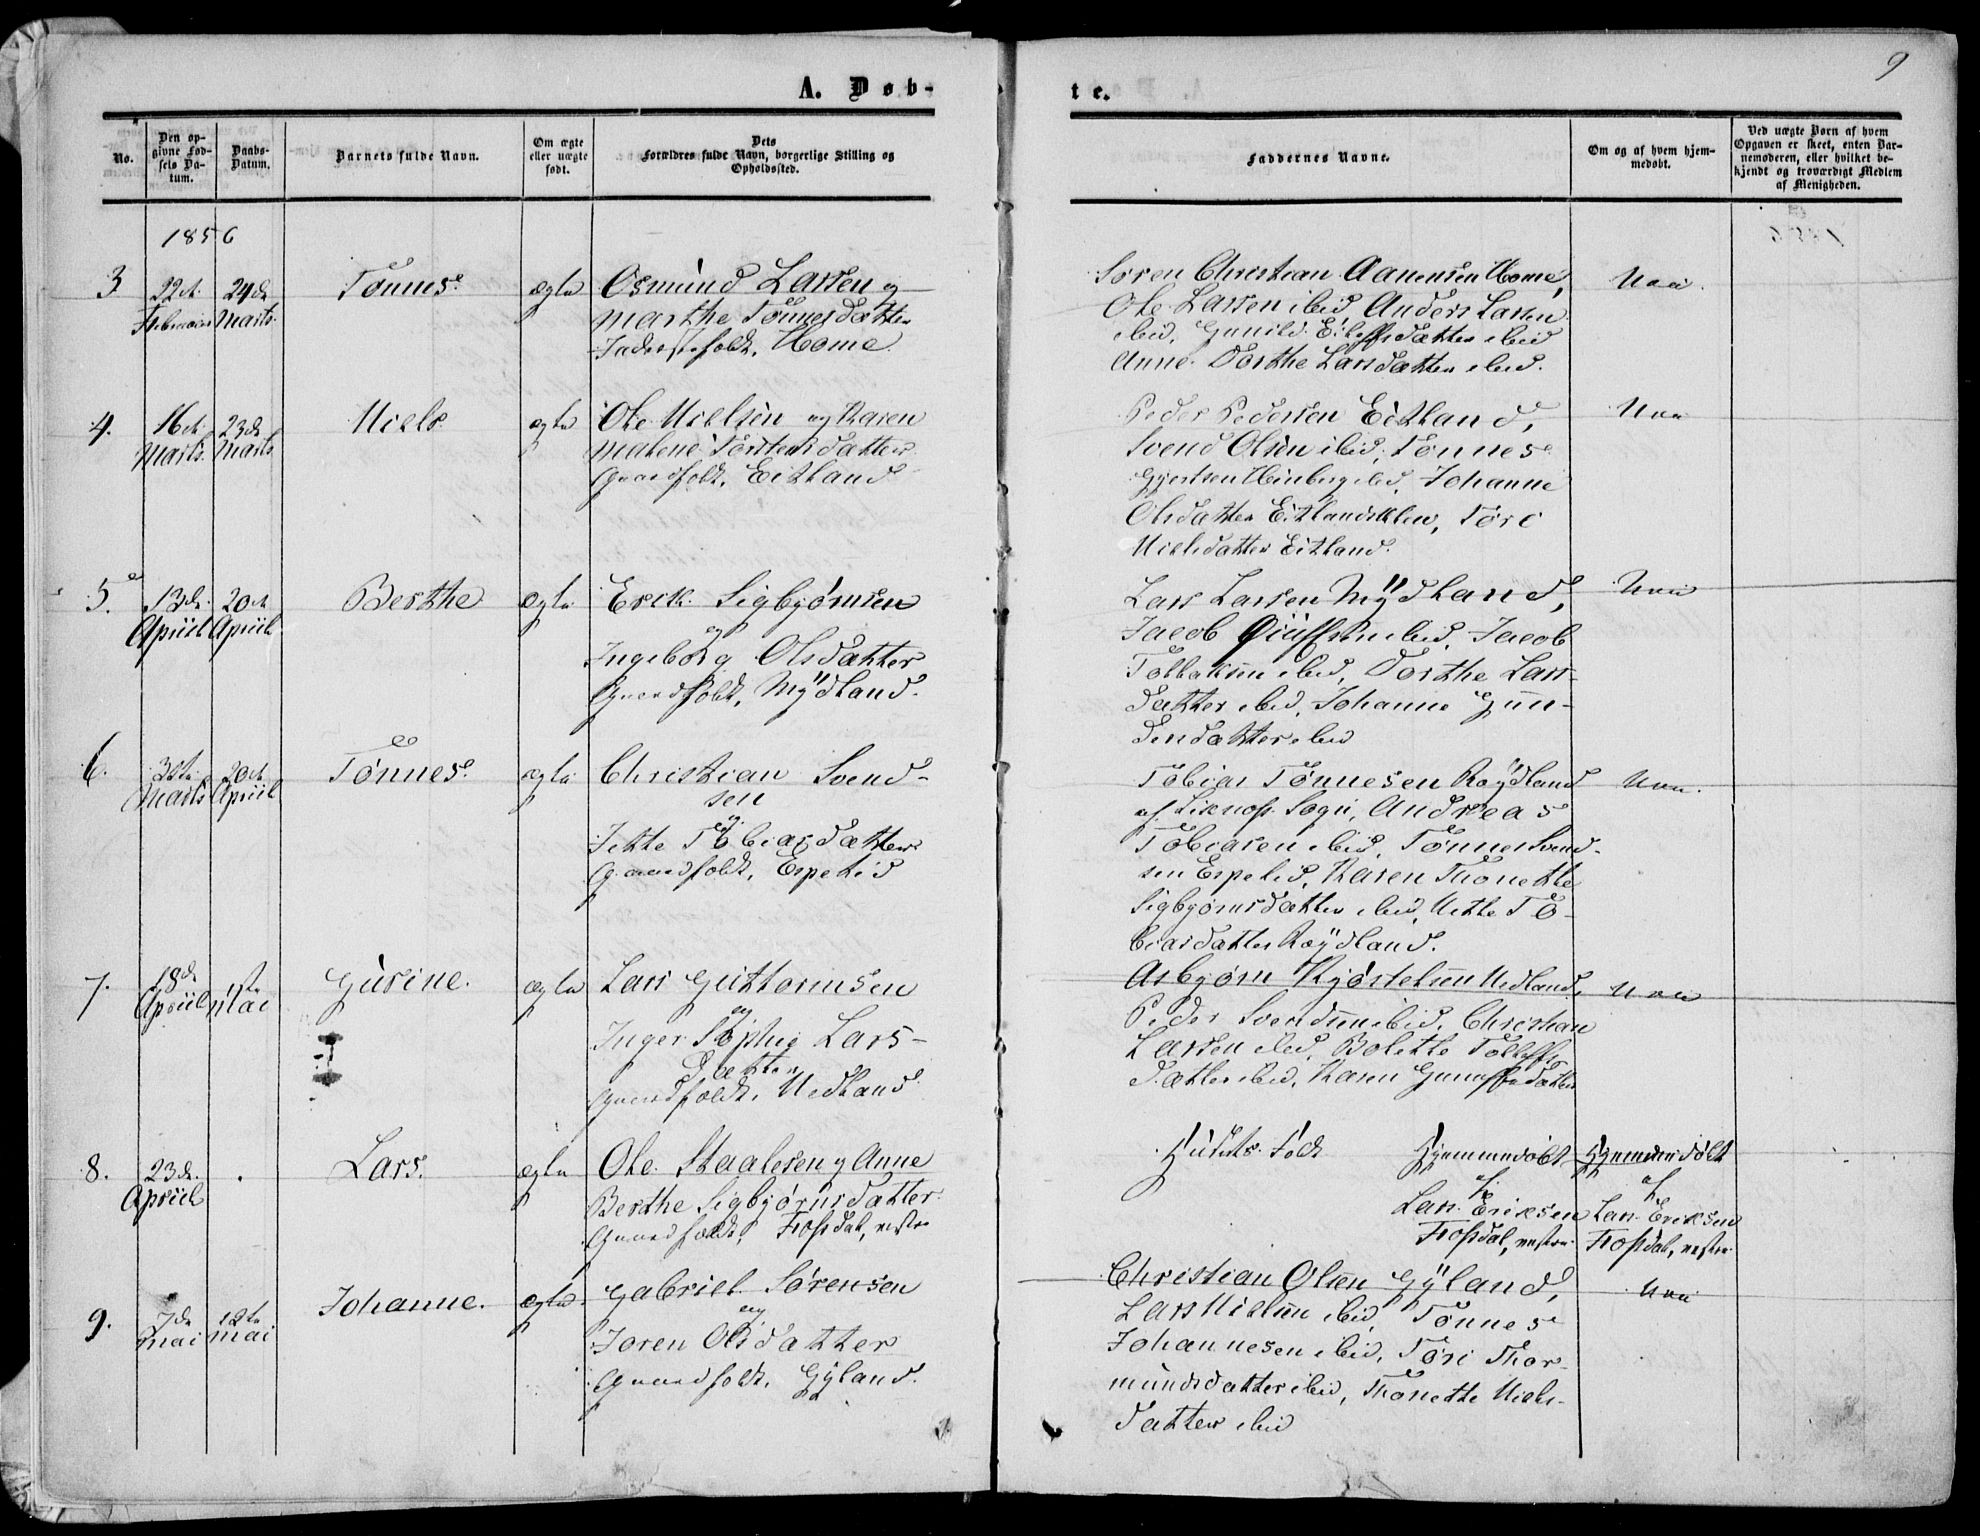 9
A. Døb-
te.
No.
Den op-
givne Fød-
sels Da-
tum.
Daabs-
Datum.
Barnets fulde Navn.
Om ægte
eller uægte
født.
Dets
Forældres fulde Navn, borgerlige Stilling og
Opholdssted.
Faddernes Navne.
Om og af hvem hjem-
medøbt.
Ved uægte Børn af hvem
Opgaven er skeet, enten Bar-
nemoderen, eller hvilket be-
kjendt og troværdigt Medlem
af Menigheden.
1856
3
22de
Februar
24de
Marts.
Tønnes.
ægte
Osmund Larsen og
Marthe Tønnesdatter
Home.
Søren Christian Aanensen Home,
Ole Larsen ibid, Anders Larsen
ibid, Gunild Eileffsdatter ibid
Anne Dorthe Larsdatter ibid.
Nei.
4.
16de
Marts.
23de
Marts
Niels
ægte
Ole Nielsen og Karen
Malene Torstensdatter
Gaardfolk, Eitland
Peder Pedersen Eitland,
Svend Olsen ibid, Tønnes
Gjertsen ibid, Johanne
Olsdatter Tøre
Nielsdatter Eitland.
Nei
5.
13de
Apriil
20de
Apriil
Berthe
ægte
Erik Sigbjørnsen
og
Ingeborg Olsdatter
Gaardfolk, Mÿdland.
Lars Larsen Mÿdland,
Jacob ibid, Jacob
ibid, Dorthe Lars-
datter ibid, Johanne Gun-
dersdatter ibid
Nei
6.
Marts
20de
Apriil
Tønnes.
ægte
Christian Svend-
sen
og
Jette Tobiasdatter
Gaardfolk, Espelid
Tobias Tønnesen Røÿdland
af Sogn, Andreas
Tobiasen ibid, Tønnes Svend-
sen Espelid, Karen Thonette
Sigbjørnsdatter ibid, To-
biasdatter Røÿdland.
Nei.
7.
18de
Apriil
1ste
Mai
Gusine.
ægte
Lars Guttormsen
og
Inger Sophie Lars-
datter
Gaardfolk, Nedland
Asbjørn Nedland,
Peder Svendsen ibid, Christian
Larsen ibid, Bolette Tolleffs-
datter ibid, Karen
Nei
8.
23de
Apriil
.
Lars.
ægte
Ole Staalesen og Anne
Berthe Sigbjørnsdatter
Gaardfolk, Frøsdal, vestre
Hjemmedøbt
af
Lars Eriksen
Frøsdal, vestre
Hjemmedøbt
af
Lars Eriksen
Frøsdal, vestre
9.
7de
Mai
12te
Mai
Johanne.
ægte
Gabriel Sørensen
og
Joren Olsdatter
Gaardfolk, Gÿland.
Christian Olsen Gÿland,
Lars Nielsen ibid, Tønnes
Johannesen ibid, Tøri Thor-
mundsdatter ibid, Thonette Niels-
datter ibid
Nei